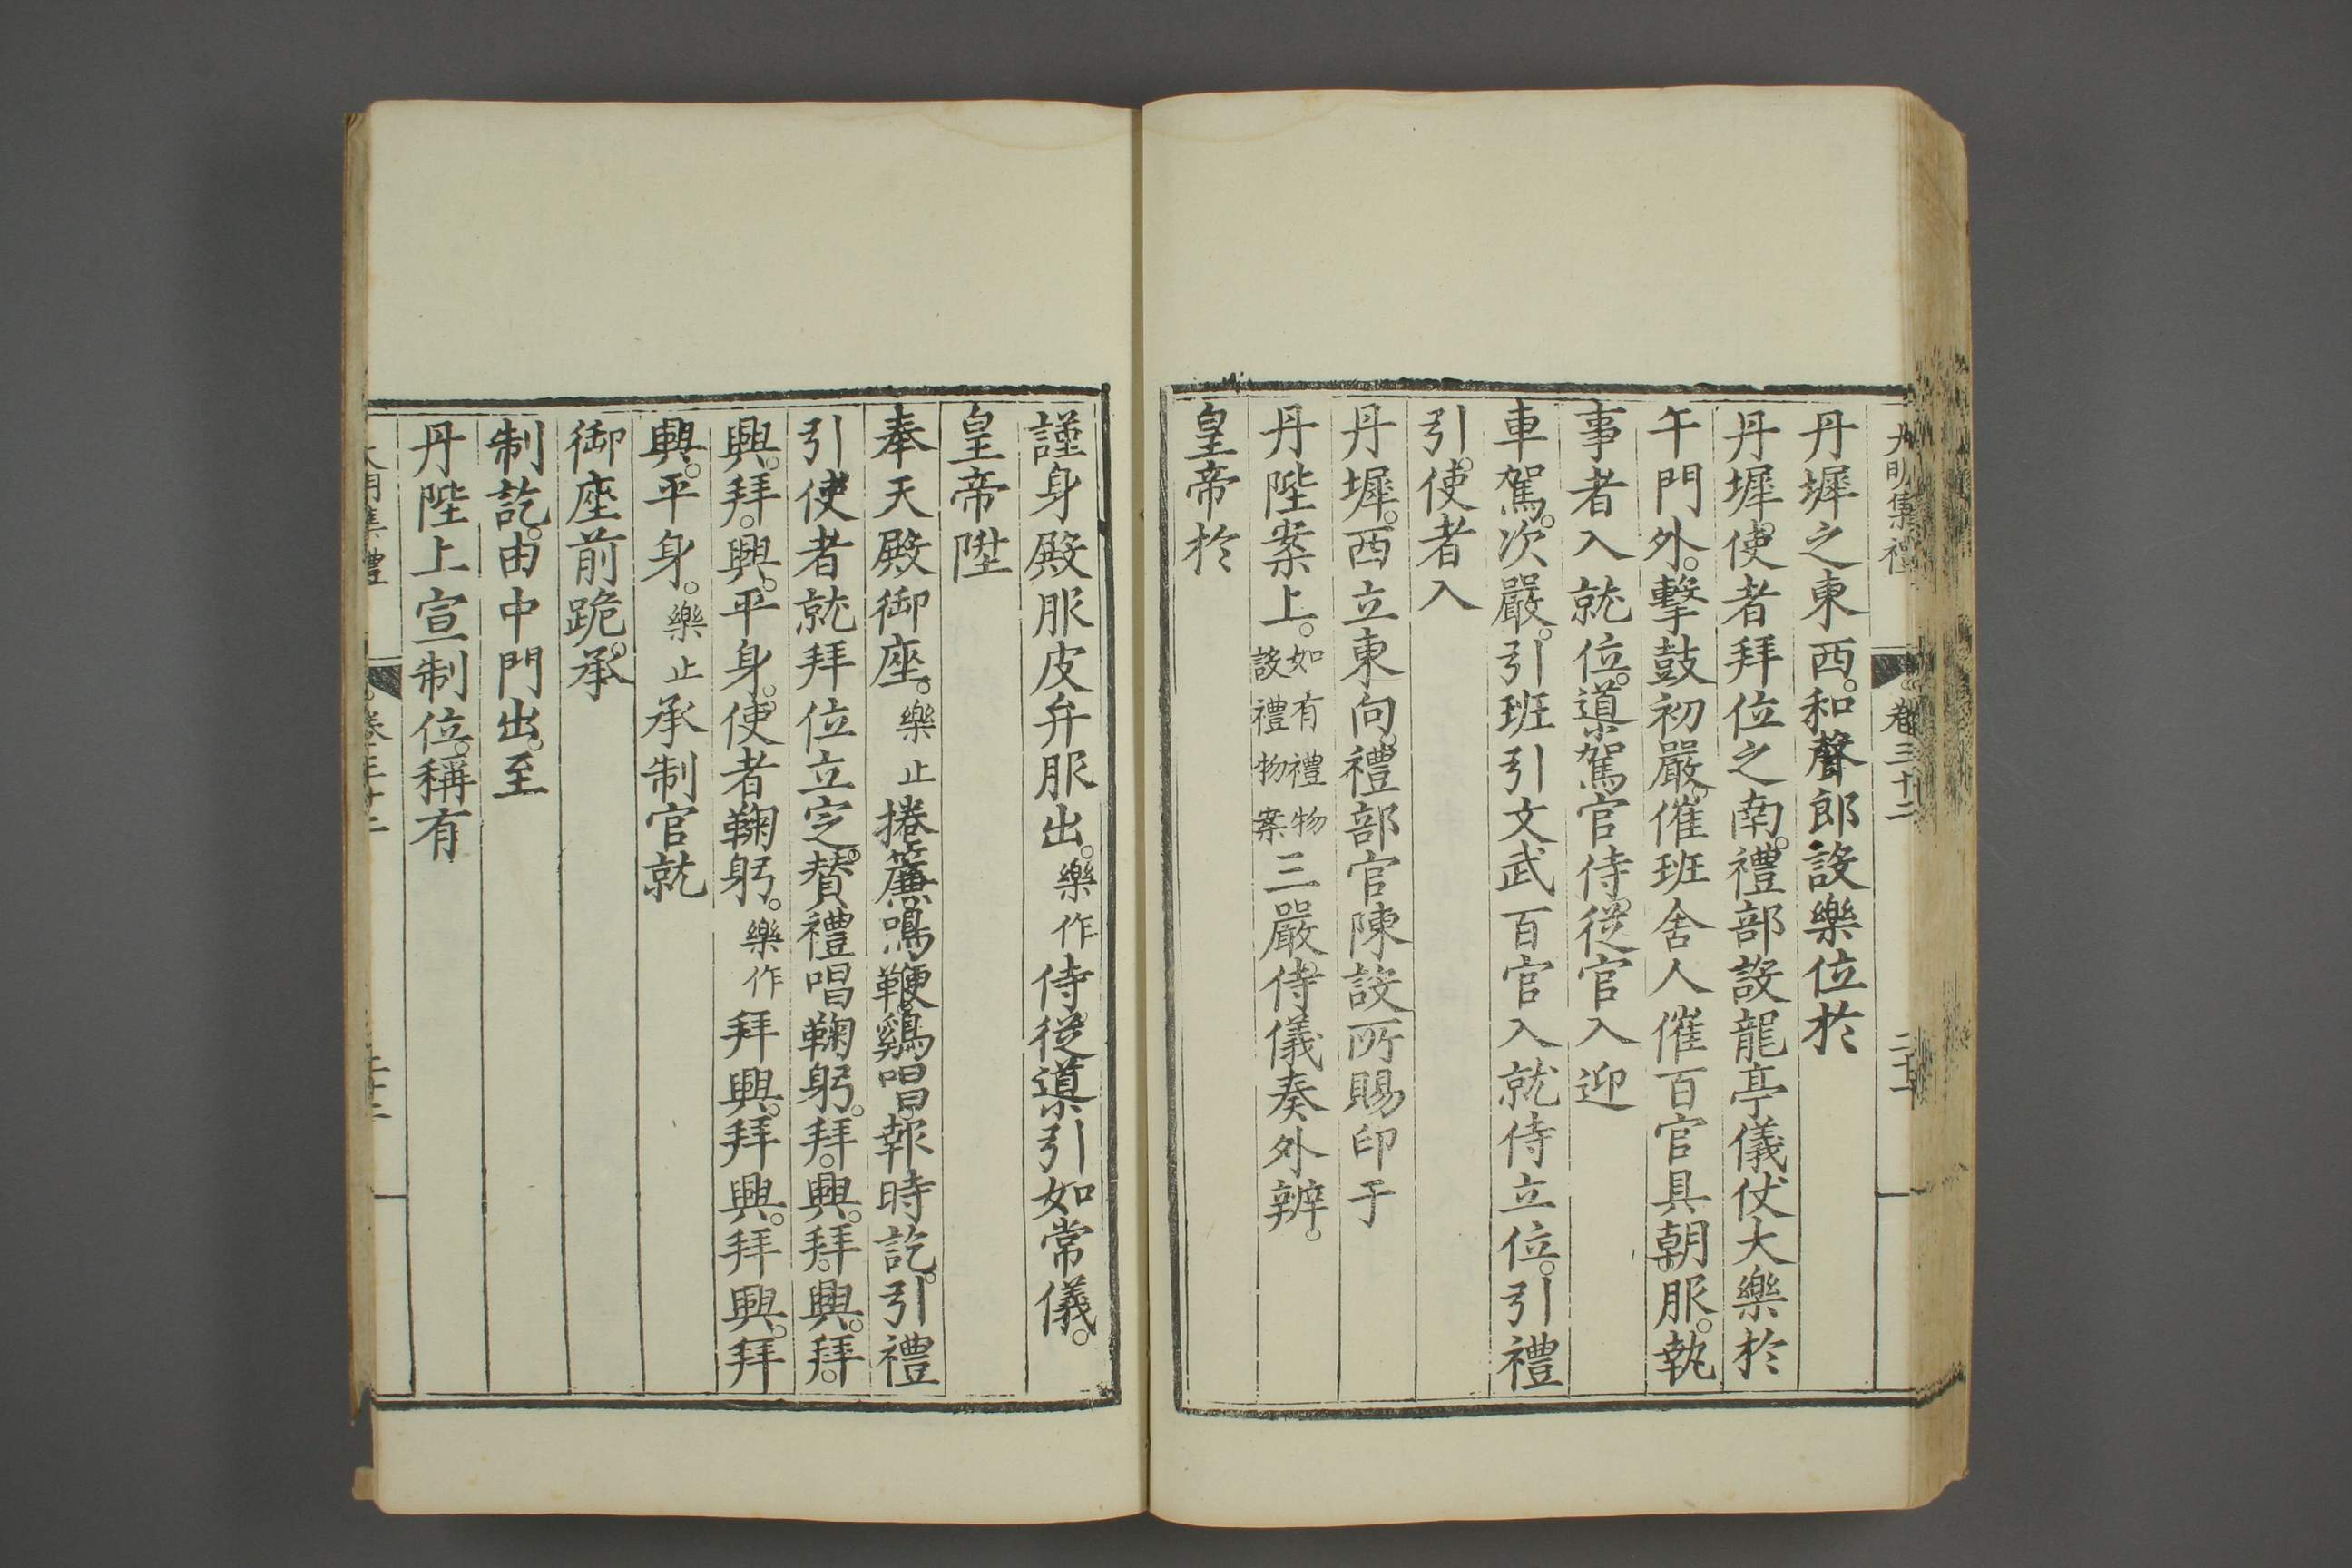 大明集禮 卷三十二 二十一
丹墀之東西。和聲郎設樂位於
丹墀。使者拜位之南。禮部設龍亭儀仗大樂於
午門外。擊鼓初嚴。催班舍人催百官具朝服。執
事者入就位。導駕官侍。從官入迎
車駕。次嚴。引班引文武百官入就侍立位。引禮
引。使者入
丹墀。西立東向。禮部官陳設所賜印于
丹陛案上。如有禮物設禮物案三嚴。侍儀奏外辨。
皇帝於
謹身殿服皮弁服出。樂作侍。從導引如常儀。
皇帝陞
奉天殿御座。樂止捲簾。鳴鞭。鷄唱。報時訖。引禮
引使者就拜位立定。贊禮唱鞠躬。拜。興。拜。興。拜。
興。拜。興。平身。使者鞠躬。樂作拜興。拜興。拜興。拜
興。平身。樂止承制官就
御座前跪。承
制訖。由中門出。至
丹陛上宣制位。稱有
大明集禮 卷三十二